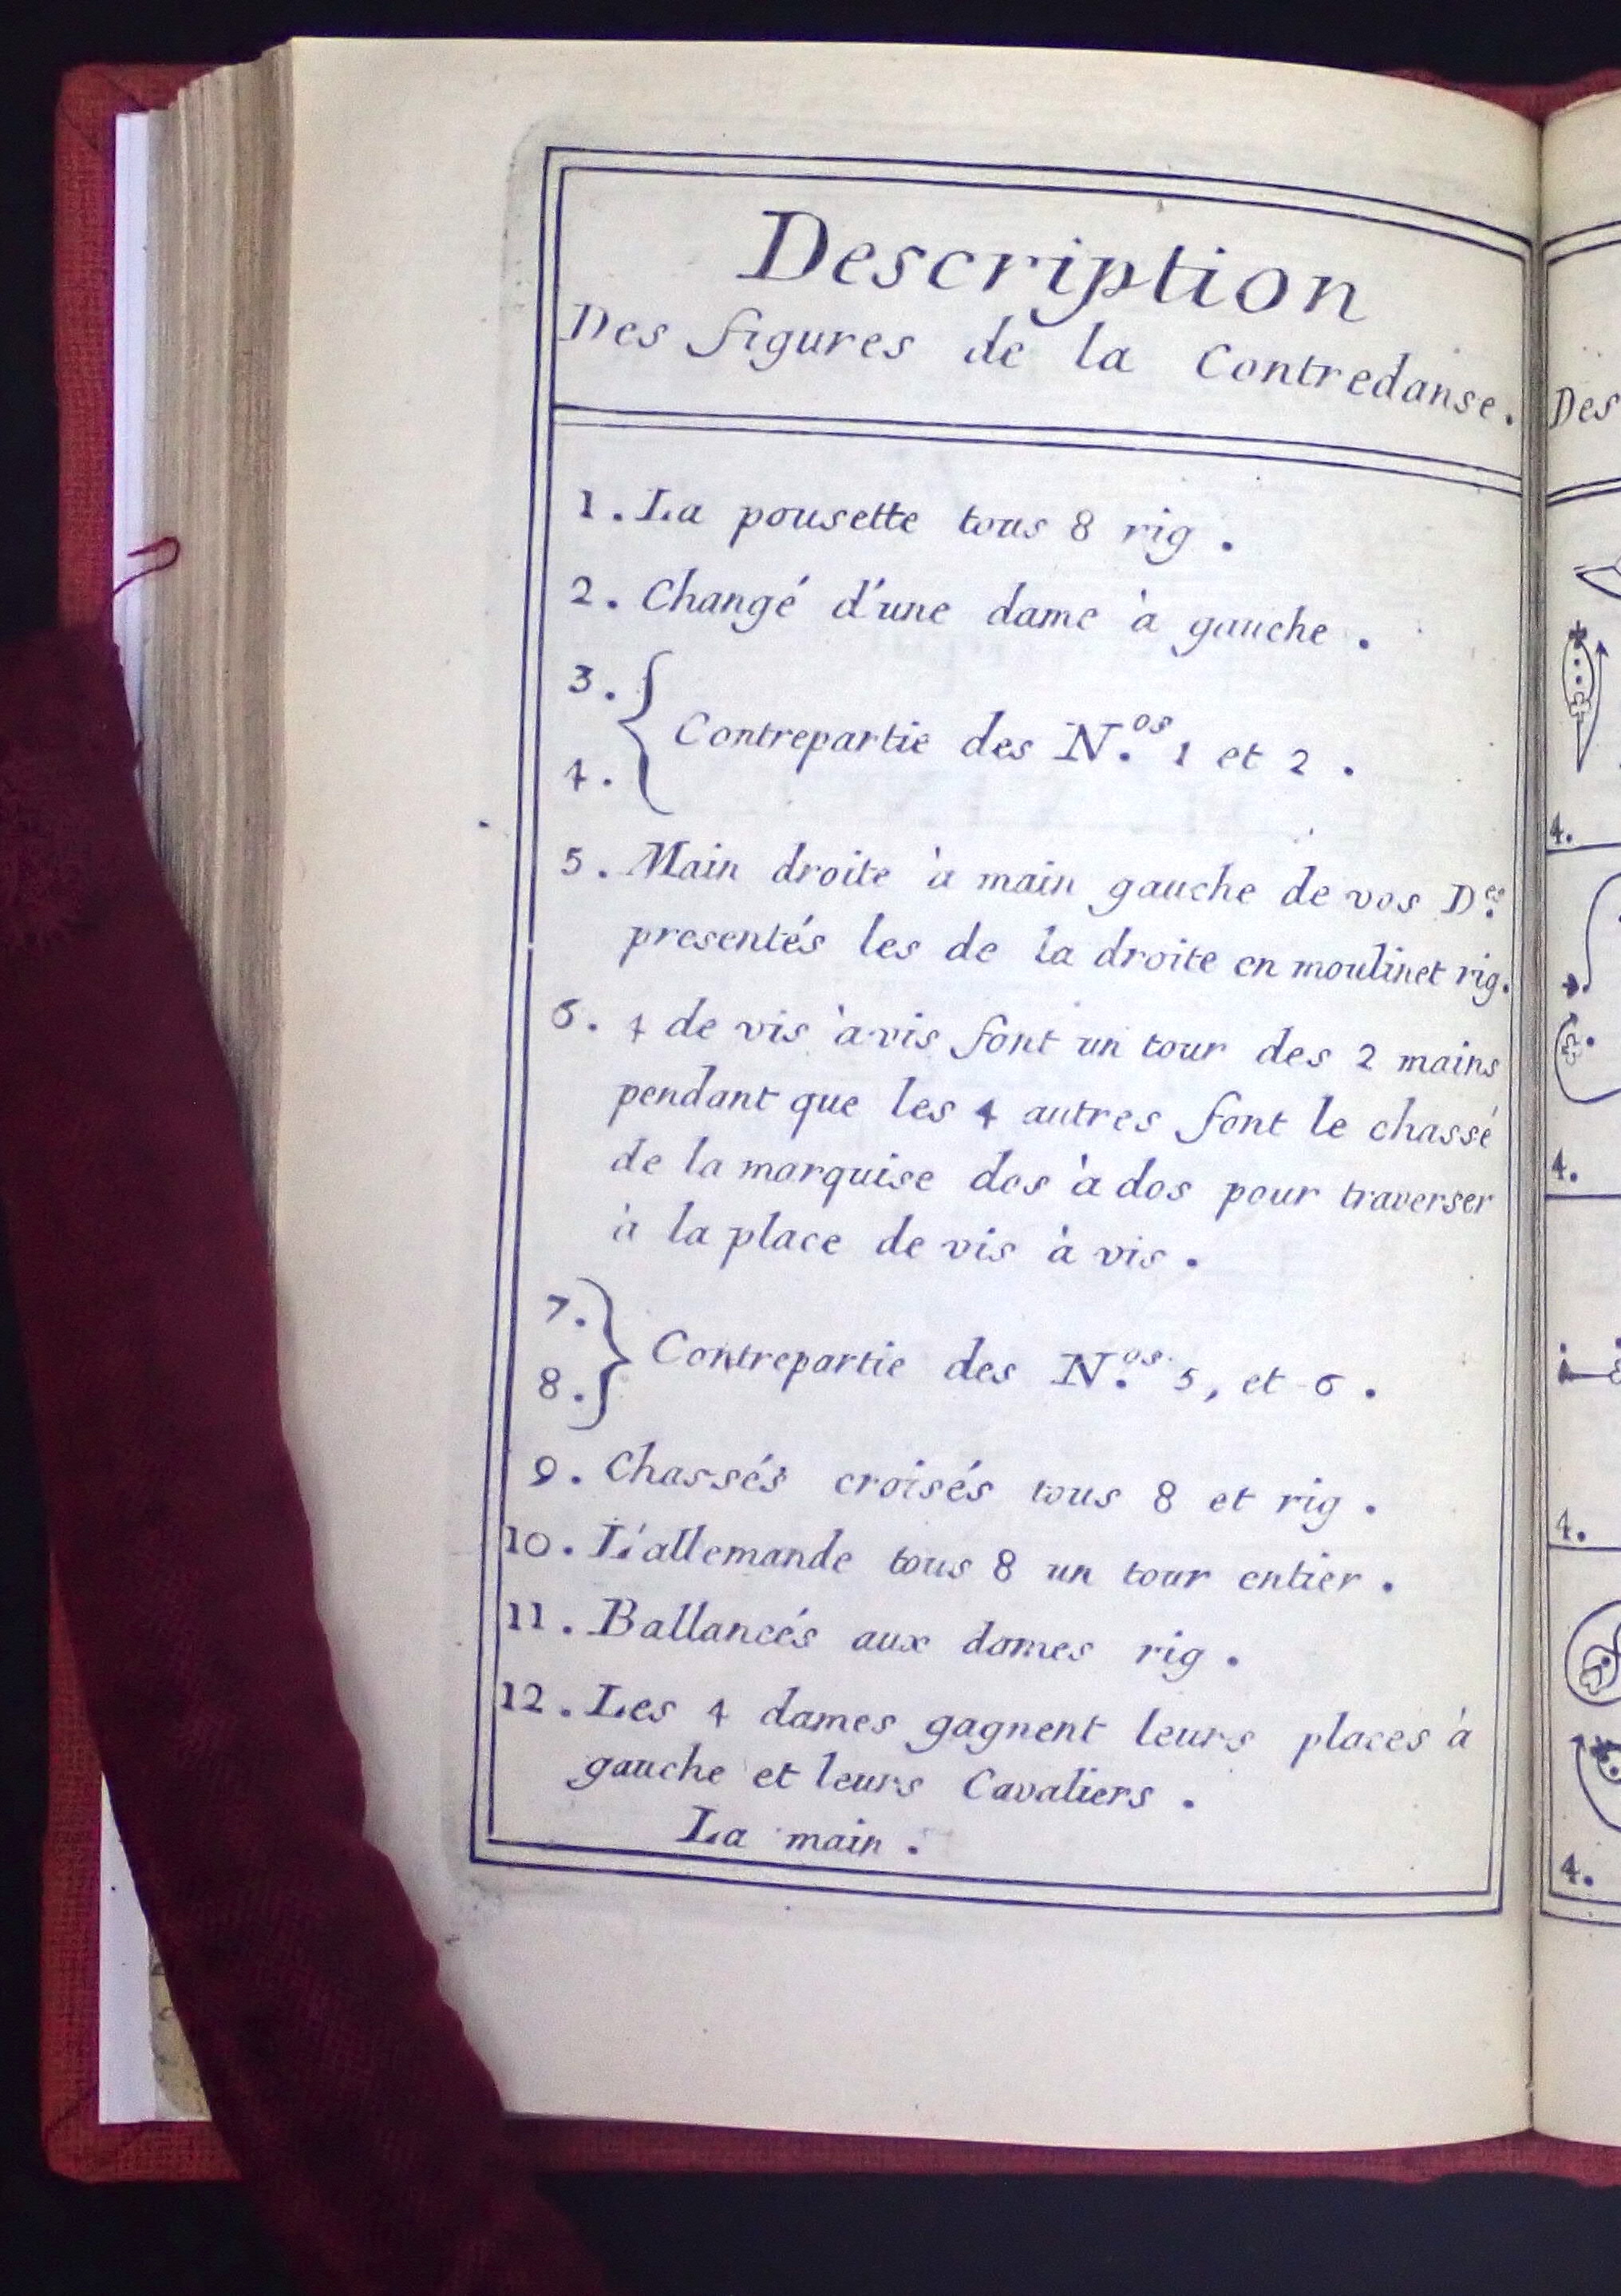 Description
Des figures de la Contredanse.
1. La pousette tous 8 rig.
2. Changé d'une dame à gauche.
3.
Contrepartie des N.os 1 et 2.
4.
5. Main droite à main gauche de vos D.es
presentés les de la droite en moulinet rig.
6. 4 de vis à vis font un tour des 2 mains
pendant que les 4 autres font le chassé
de la marquise dos à dos pour traverser
à la place de vis à vis.
7.
Contrepartie des N.os 5, et 6.
8.
9. Chassés croisés tous 8 et rig.
10. L'allemande tous 8 un tour entier.
11. Ballancés aux dames rig.
12. Les 4 dames gagnent leurs places à
gauche et leurs Cavaliers.
La main.
Des
4.
4.
4.
4.